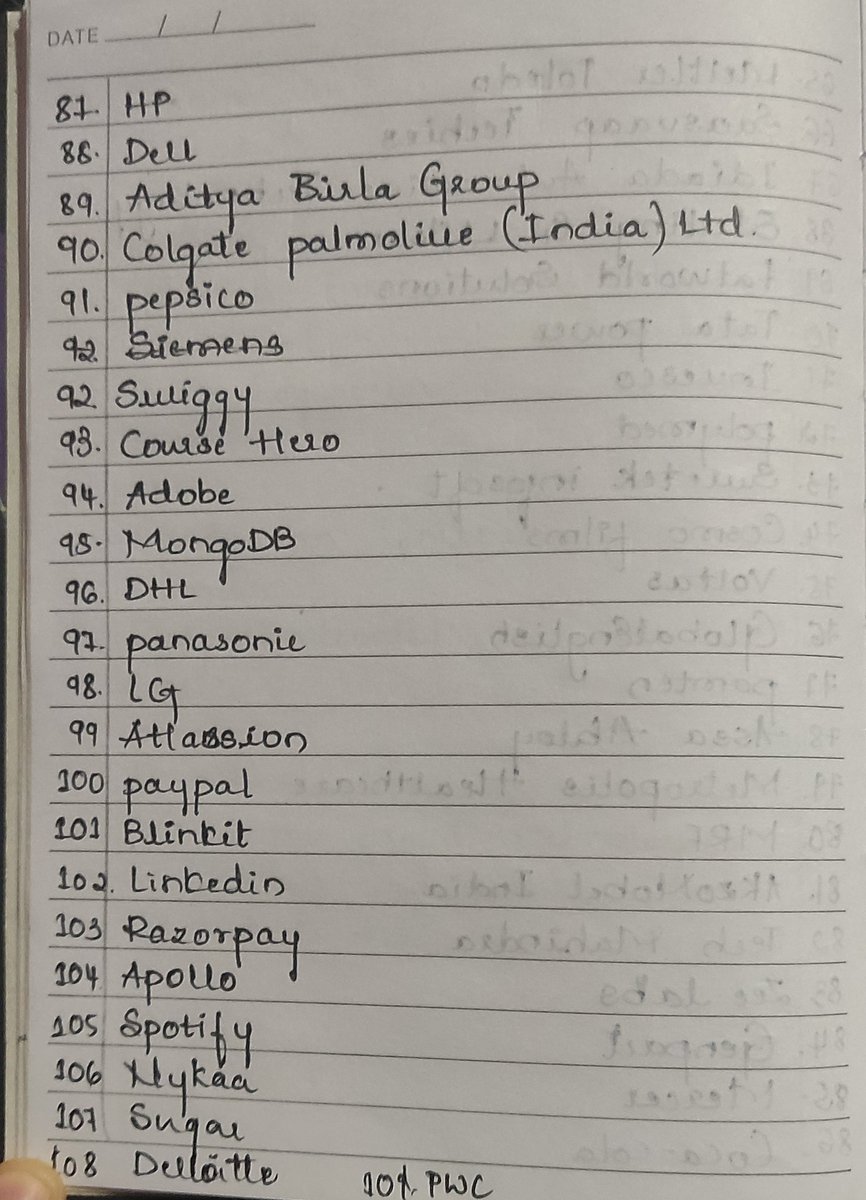 DATE / /
87. HP
88. Dell
89. Aditya Birla Group
90. Colgate palmolive (India) Ltd.
91. pepsico
92. Siemens
92 Swiggy
93. Course Hero
94. Adobe
95. MongoDB
96. DHL
97. panasonic
98. LG
99 Atlassion
100 paypal
101 Blinkit
102. Linkedin
103 Razorpay
104 Apollo
105 Spotify
106 Nykaa
107 Sugar
108 Delloitte 109. PWC